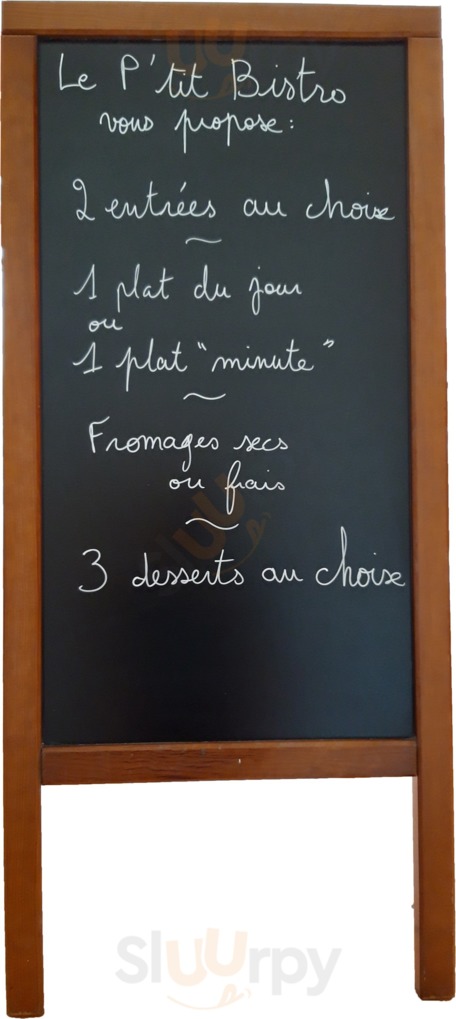 Le P'tit Bistro
vous propose:
2 entrées au choix
~
1 plat du jour
ou
1 plat "minute"
~
Fromages secs
ou frais
~
3 desserts au choix
Sluurpy